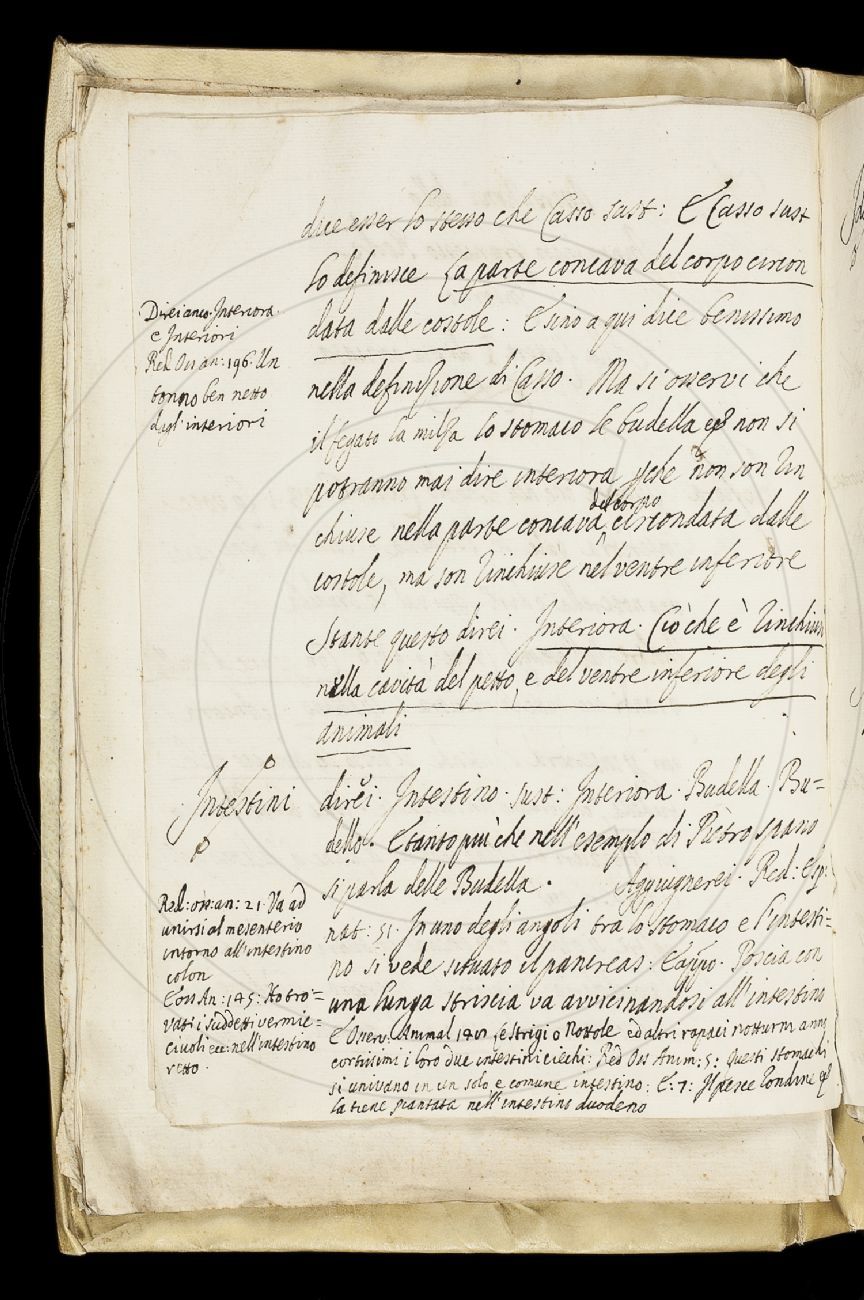 dice esser lo stesso che Casso sust: E Casso sust
lo definisce La parte concava del corpo circon
data dalle costole: E sino a qui dice benissimo
nella definizione di Casso. Ma si osservi che
il fegato la milza lo stomaco le budella non si
potranno mai dire interiora pche non son rin
chiuse nella parte concava del corpo circondata dalle
costole, ma son rinchiuse nel ventre inferiore
Stante questo direi. Interiora. Ciò che è rinchiuso
nella cavità del petto, e del ventre inferiore degli
animali
Direi anco Interiora
e Interiori
Red. Oss an: 196. Un
tonno ben netto
degl'interiori
Intestini
direi. Intestino. sust: Interiora. Budella. Bu=
dello. E tanto più che nell'esemplo di Pietro spano
si parla delle Budella. Aggiugnerei. Red: Esp:
nat: 51. In uno degli angoli tra lo stomaco e l'intesti=
no si vede situato il pancreas: E appo. Poscia con
una lunga striscia va avvicinandosi all'intestino
E Osserv: Animal le strigi o Nottole ed altri rapaci notturni anno
cortissimi i loro due intestini ciechi: Red Oss Anim: 5: Questi stomachi
si univano in un solo e comune intestino: E: 7: Il pesce rondine
la tiene piantata nell'intestino duodeno
Red: oss: an: 21. Va ad
unirsi al mesenterio
intorno all'intestino
colon
E oss An: 145: Ho tro=
vati i suddetti vermic=
ciuoli ecc: nell'intestino
retto.